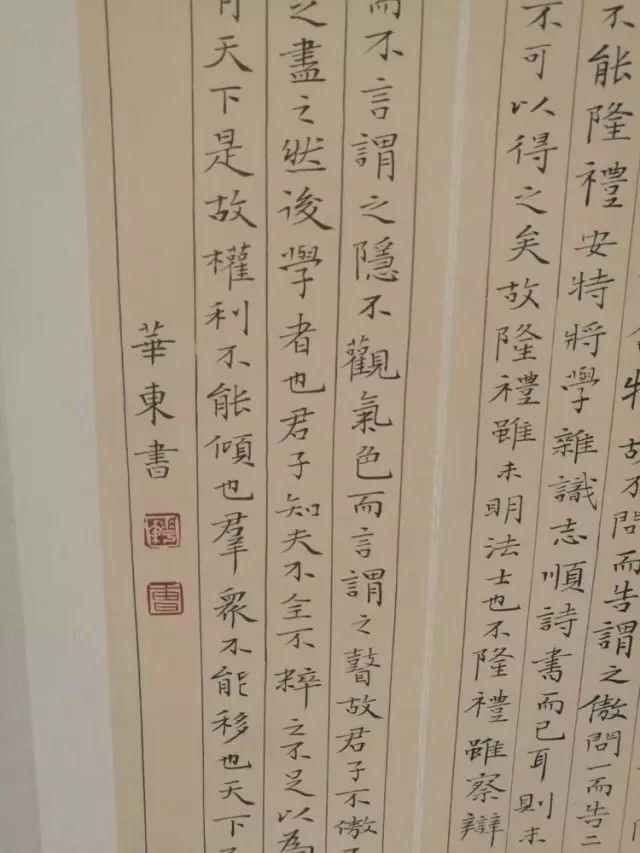 故不問而告謂之傲問一而告二
不能隆禮安特將學雜識志順詩書而已耳則未
不可以得之矣故隆禮雖未明法士也不隆禮雖察辯
而不言謂之隱不觀氣色而言謂之瞽故君子不傲
之盡之然後學者也君子知夫不全不粹之不足以為
天下是故權利不能傾也羣衆不能移也天下
華東書